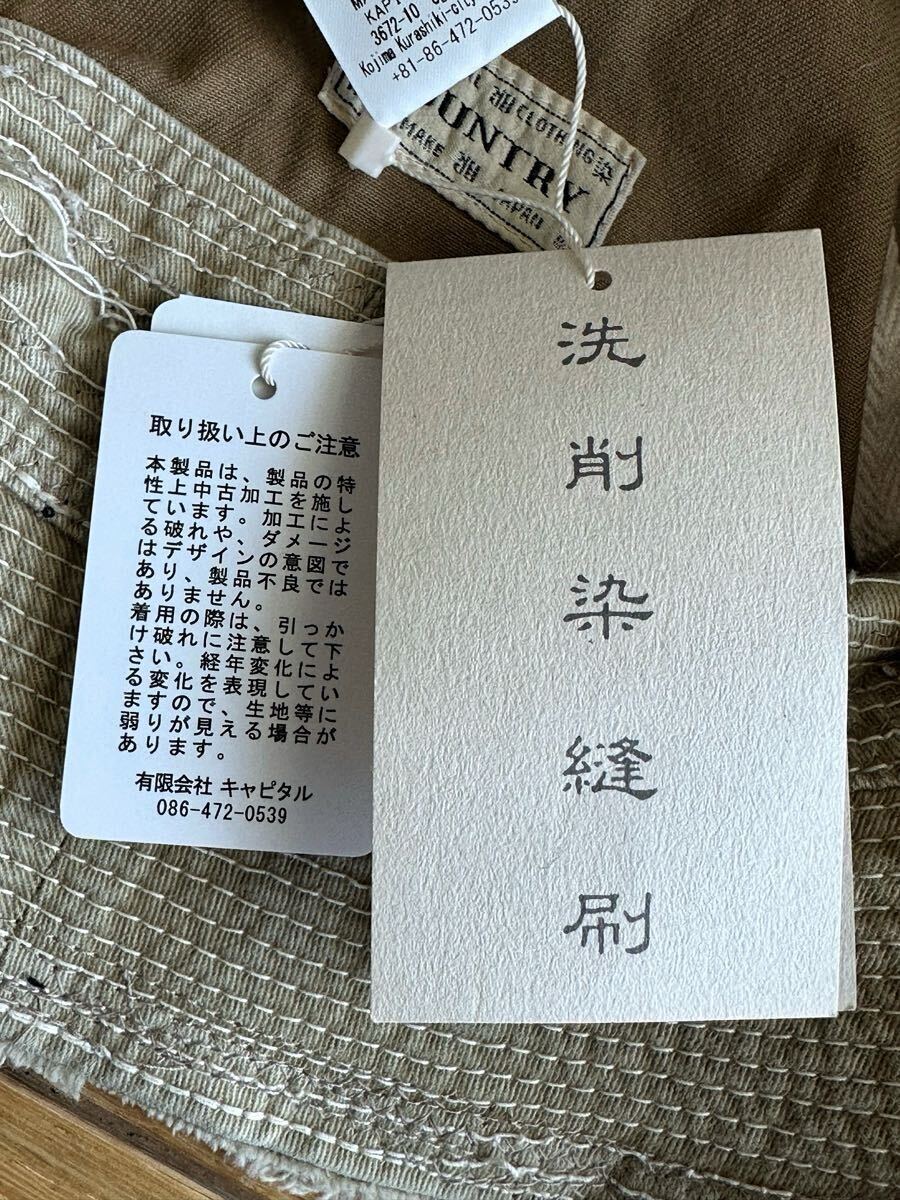 3672-10
Kojima Kurashiki-city
+81-86-472-0539
CLOTHING 染
MAKE
取り扱い上のご注意
本製品は、製品の特
性上中古加工を施し
ています。加工によ
る破れや、ダメージ
はデザインの意図で
あり、製品不良では
ありません。
着用の際は、引っか
け破れに注意して下
さい。経年変化によ
る変化を表現してい
ますので、生地等に
弱りが見える場合が
あります。
有限会社 キャピタル
086-472-0539
洗
削
染
縫
刷